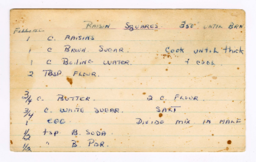 RAISIN SQUARES
1 C. RAISINS
1 C BROWN SUGAR. COOK UNTIL THICK
1 C BOILING WATER
2 TBSP FLOUR
3/4 C. BUTTER. 2 C. FLOUR
3/4 C. WHITE SUGAR. SALT
1 EGG DIVIDE MIX IN HALF
1/2 tsp B. SODA
1/2 " B PDR.